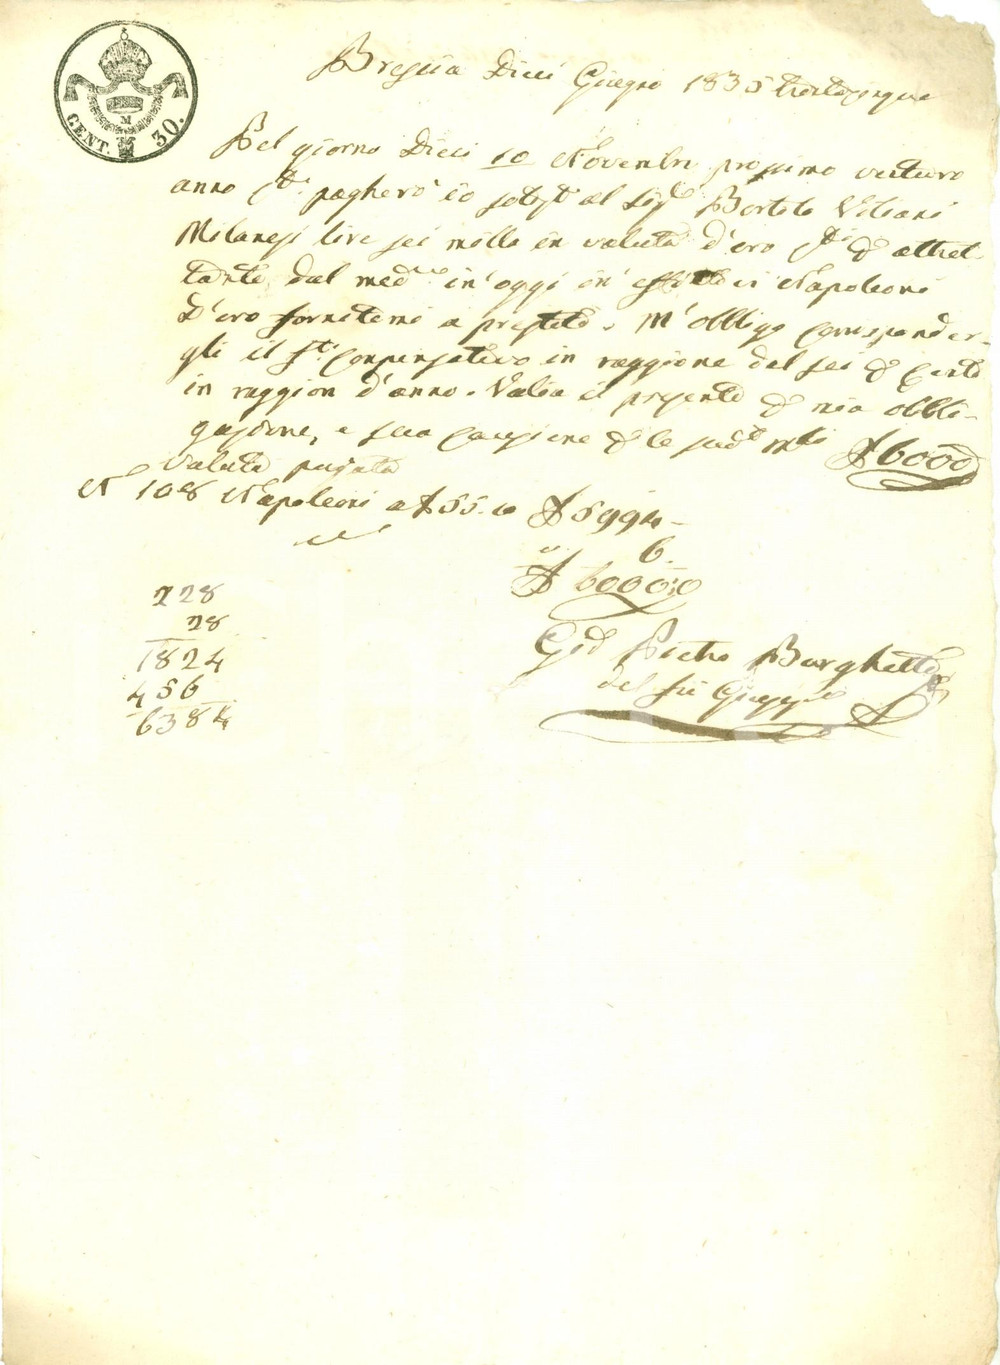 CENT. 30.
M
Brescia Dieci Giugno 1835 trentacinque
Pel giorno Dieci 10 Novembre prossimo venturo
anno pagherò io al Sig. Bortolo Viliani
Milanesi lire sei mille in valuta d'oro e altret-
tante dal med.mo in oggi in effettivi Napoleoni
D'oro fornitemi a prestito. M'obbligo corrisponder-
gli il compensativo in raggione del sei p cento
in raggion d'anno. Valga il presente p mia obbli-
gazione, e sua cauzione p le sud.e
Valuta pagata 6000
N 108 Napoleoni a 55.10 5994-
6.
6000:0
228
28
1824
456
6384
Pietro Borghetti
del fu Giuseppe